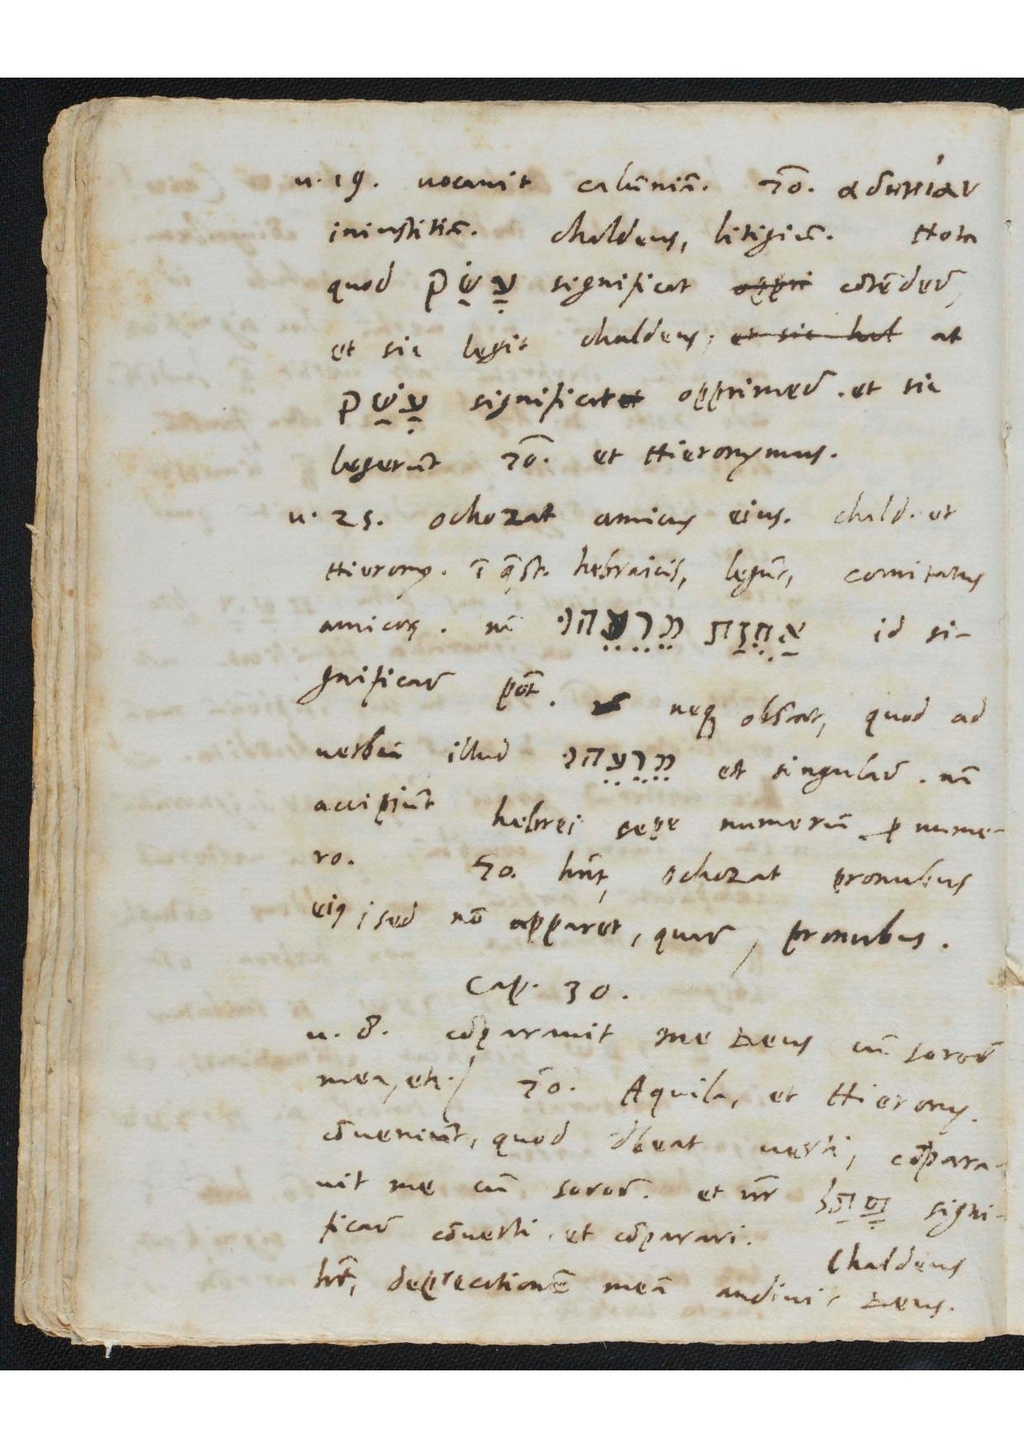 u. 19. uocauit calūniā. 70. ἀδικίαν
iniustitiā. chaldeus, litigiū. Nota
quod עָשַׂק significat contēdere,
et sic legit chaldeus, et sic at
עָשַׁק significat opprimere. et sic
legerūt 70. et Hieronymus.
u. 25. ochozat amicus eius. chald. et
Hierony. ī quest. hebraicis, legūt, comitatus
amicorū. nā אֲחֻזַּת מֵרֵעֵהוּ id si-
gnificare pot. neq obstat, quod ad
uerbū illud מֵרֵעֵהוּ est singulare. nā
accipiūt hebrei sepe numerū pro nume-
ro. 70. hnt, ochozat pronubus
eiq, sed nō apparet, quare, pronubus.
Cap. 30.
u. 8. cōparauit me Deus cū sorore
mea, etc. 70. Aquila, et Hierony.
cōueniūt, quod debeat uerti, cōpara-
uit me cū sorore. et signi-
ficare cōuerti et cōparari. Chaldeus
hēt, deprecationē meā audiuit Deus.